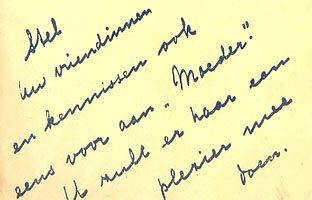 Stel
Uw vriendinnen
en kennissen ook
eens voor aan „Moeder".
U zult er haar een
plezier mee
doen.